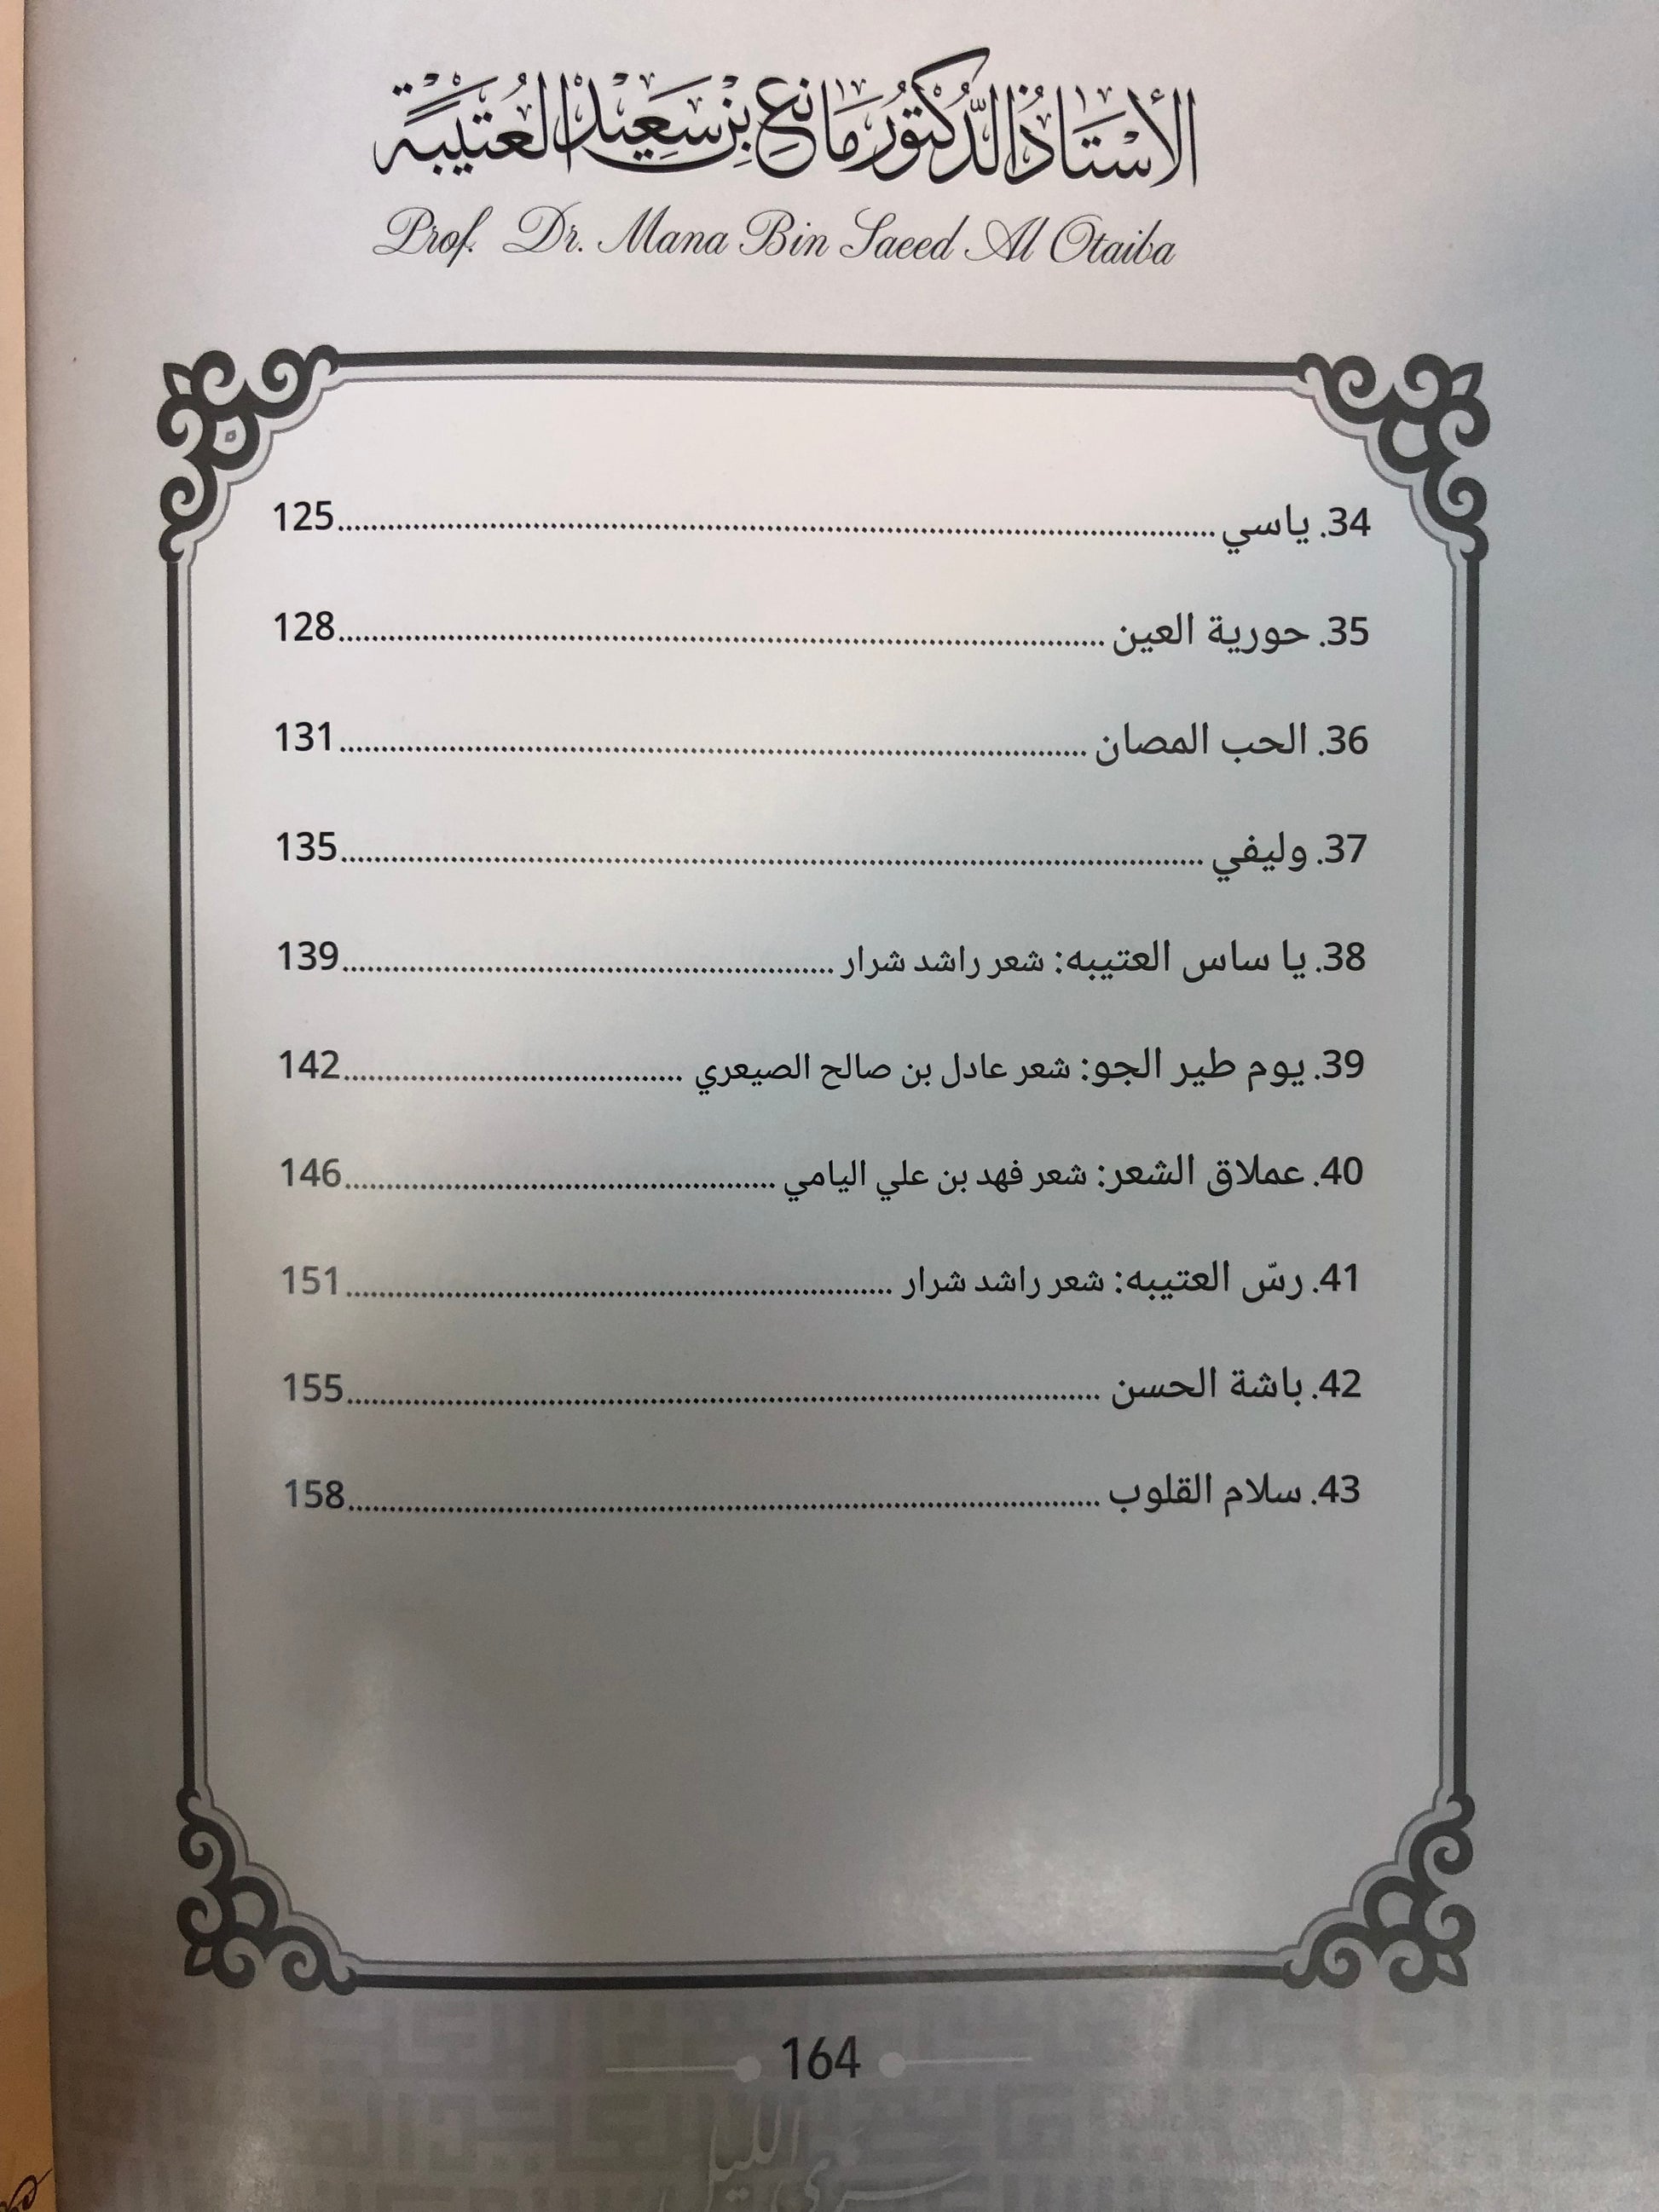 الأُسْتَاذُ الدُّكْتُورُ مَانِع بِنْ سَعِيد العُتَيْبَة
Prof. Dr. Mana Bin Saeed Al Otaiba
34. ياسي 125
35. حورية العين 128
36. الحب المصان 131
37. وليفي 135
38. يا ساس العتيبه: شعر راشد شرار 139
39. يوم طير الجو: شعر عادل بن صالح الصيعري 142
40. عملاق الشعر: شعر فهد بن علي اليامي 146
41. رسّ العتيبه: شعر راشد شرار 151
42. باشة الحسن 155
43. سلام القلوب 158
164
سرى الليل